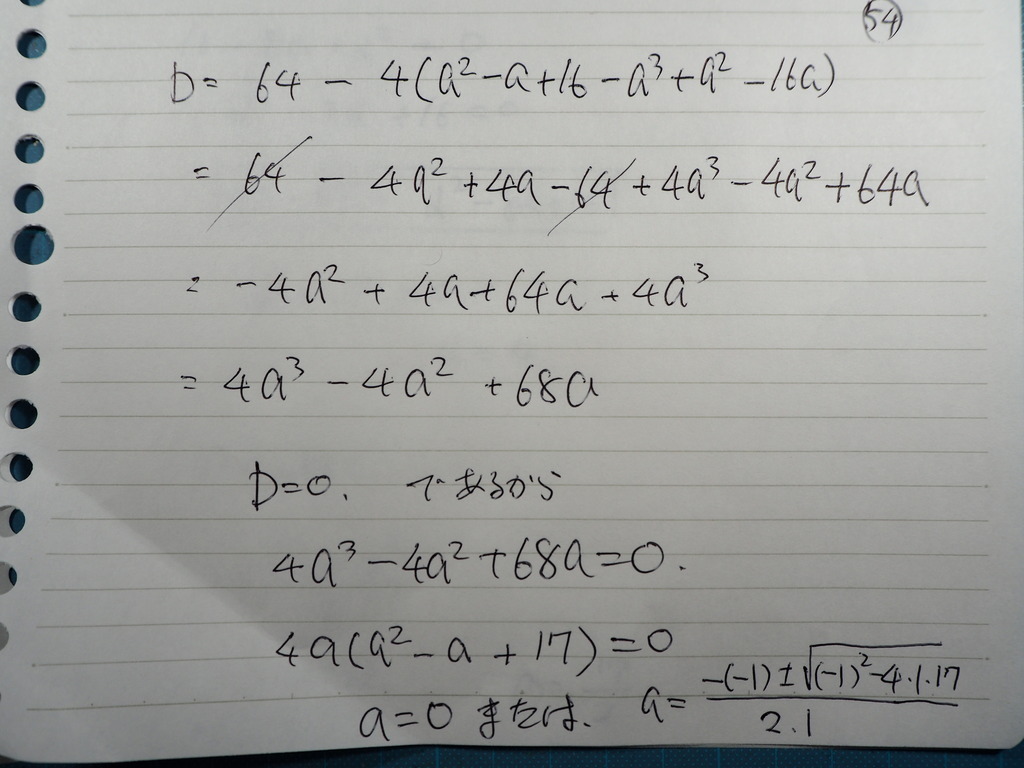 54
D = 64 - 4(a² - a + 16 - a³ + a² - 16a)
= 64 - 4a² + 4a - 64 + 4a³ - 4a² + 64a
= -4a² + 4a + 64a + 4a³
= 4a³ - 4a² + 68a
D = 0. であるから
4a³ - 4a² + 68a = 0.
4a(a² - a + 17) = 0
a = 0 または. a = (-(-1) ± √((-1)² - 4・1・17)) / (2・1)